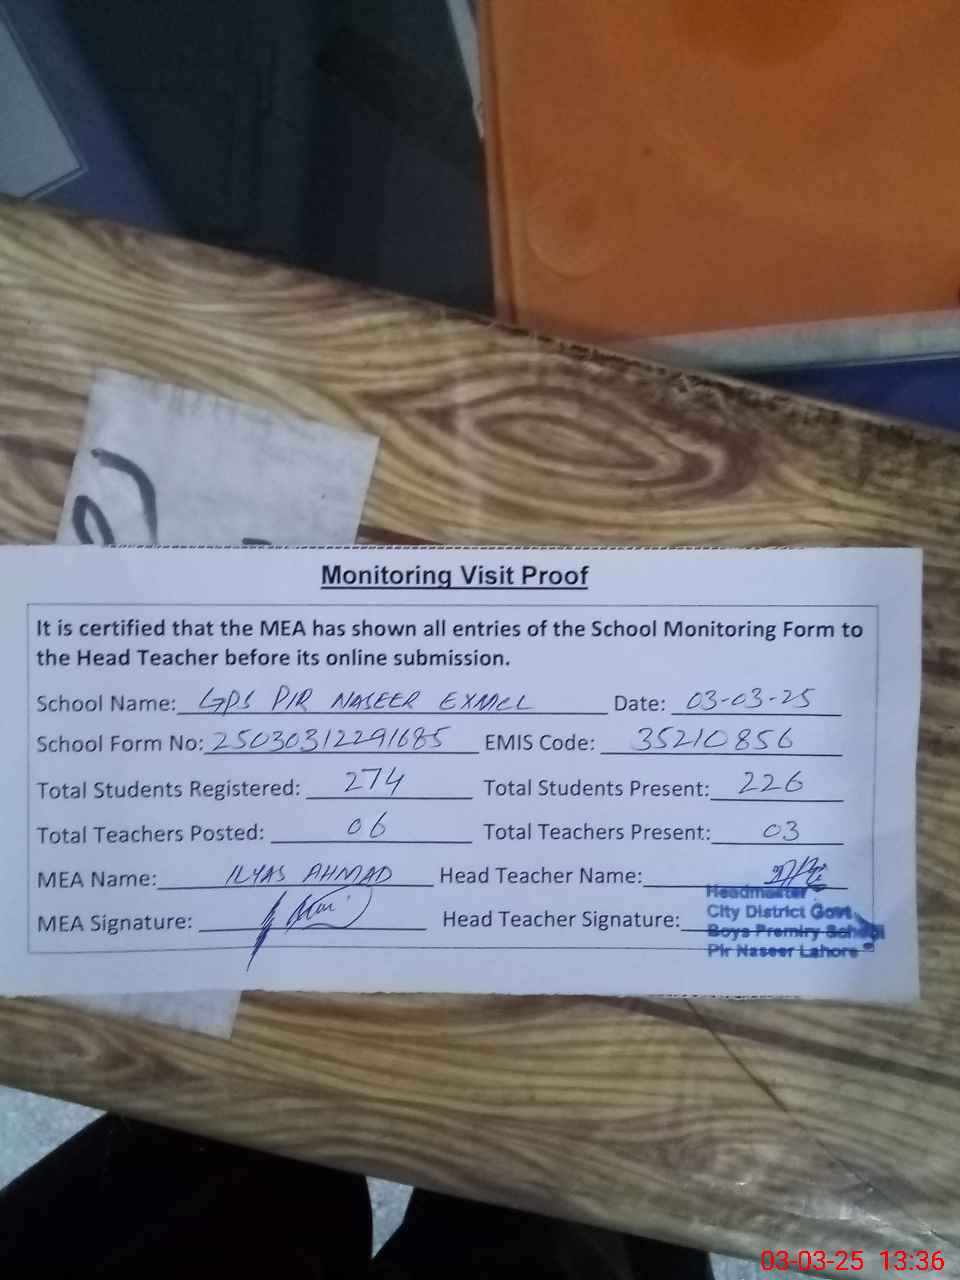 Monitoring Visit Proof
It is certified that the MEA has shown all entries of the School Monitoring Form to
the Head Teacher before its online submission.
School Name: GPS PIR NASEER EXMCL Date: 03-03-25
School Form No: 25030312291685 EMIS Code: 35210856
Total Students Registered: 274 Total Students Present: 226
Total Teachers Posted: 06 Total Teachers Present: 03
MEA Name: ILYAS AHMAD Head Teacher Name:
MEA Signature: Head Teacher Signature:
Headmaster
City District Govt.
Boys Premiry School
Pir Naseer Lahore
03-03-25 13:36